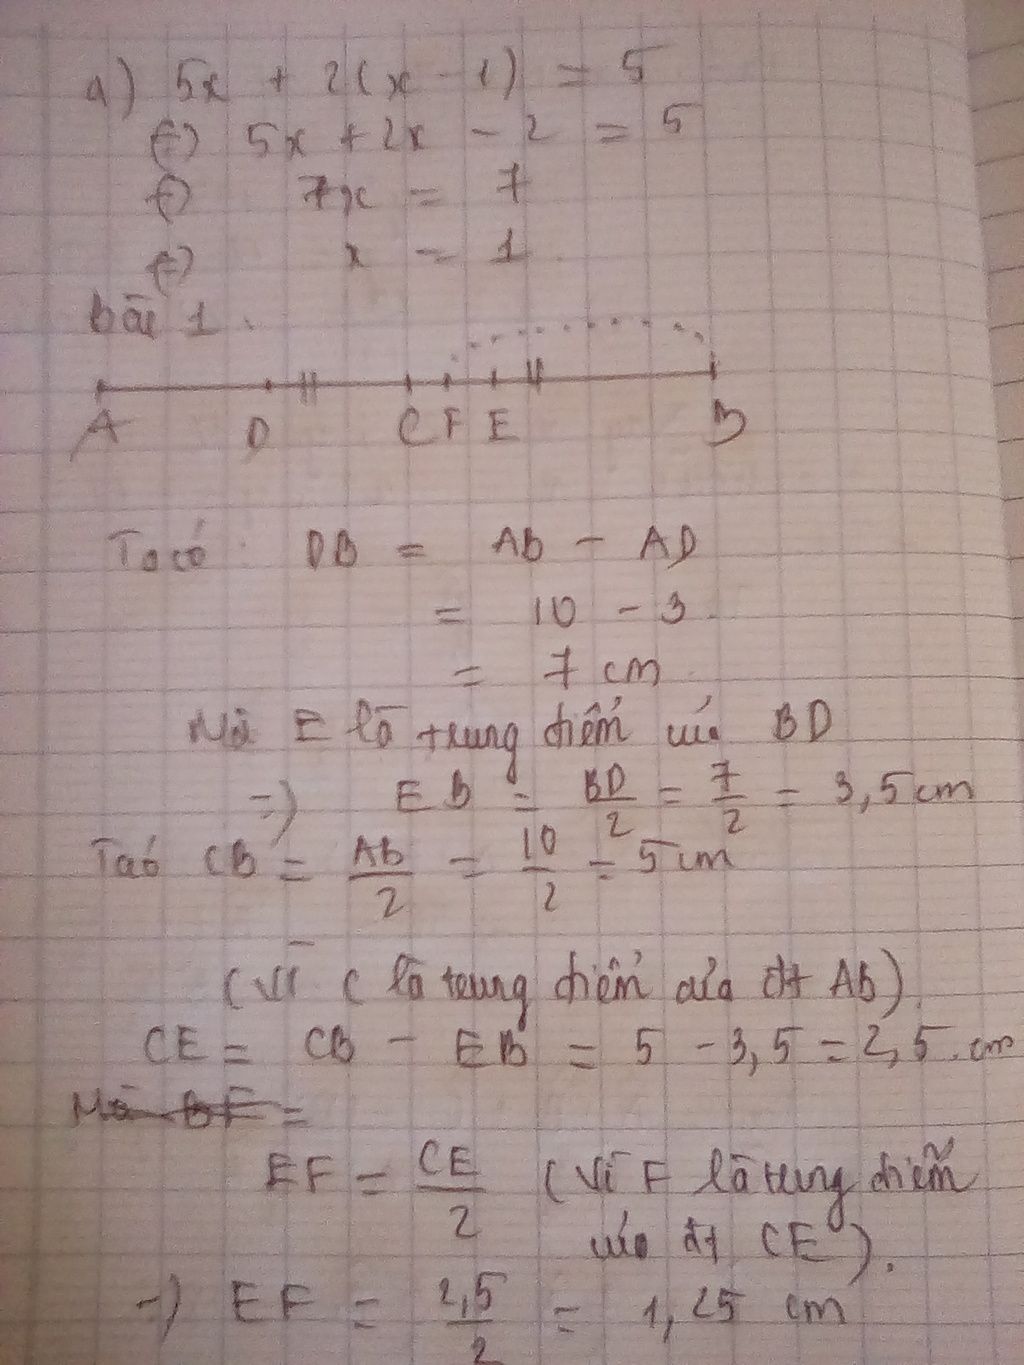 a) 5x + 2(x - 1) = 5
(=) 5x + 2x - 2 = 5
(=) 7x = 7
(=) x = 1
bài 1.
A D C F E B
Ta có: DB = AB - AD
= 10 - 3
= 7 cm
Mà E là trung điểm của BD
=) EB = BD/2 = 7/2 = 3,5 cm
Ta có CB = AB/2 = 10/2 = 5 cm
(Vì C là trung điểm của đt AB).
CE = CB - EB = 5 - 3,5 = 2,5 cm
Mà BF =
EF = CE/2 (Vì F là trung điểm
của đt CE).
=) EF = 2,5/2 = 1,25 cm